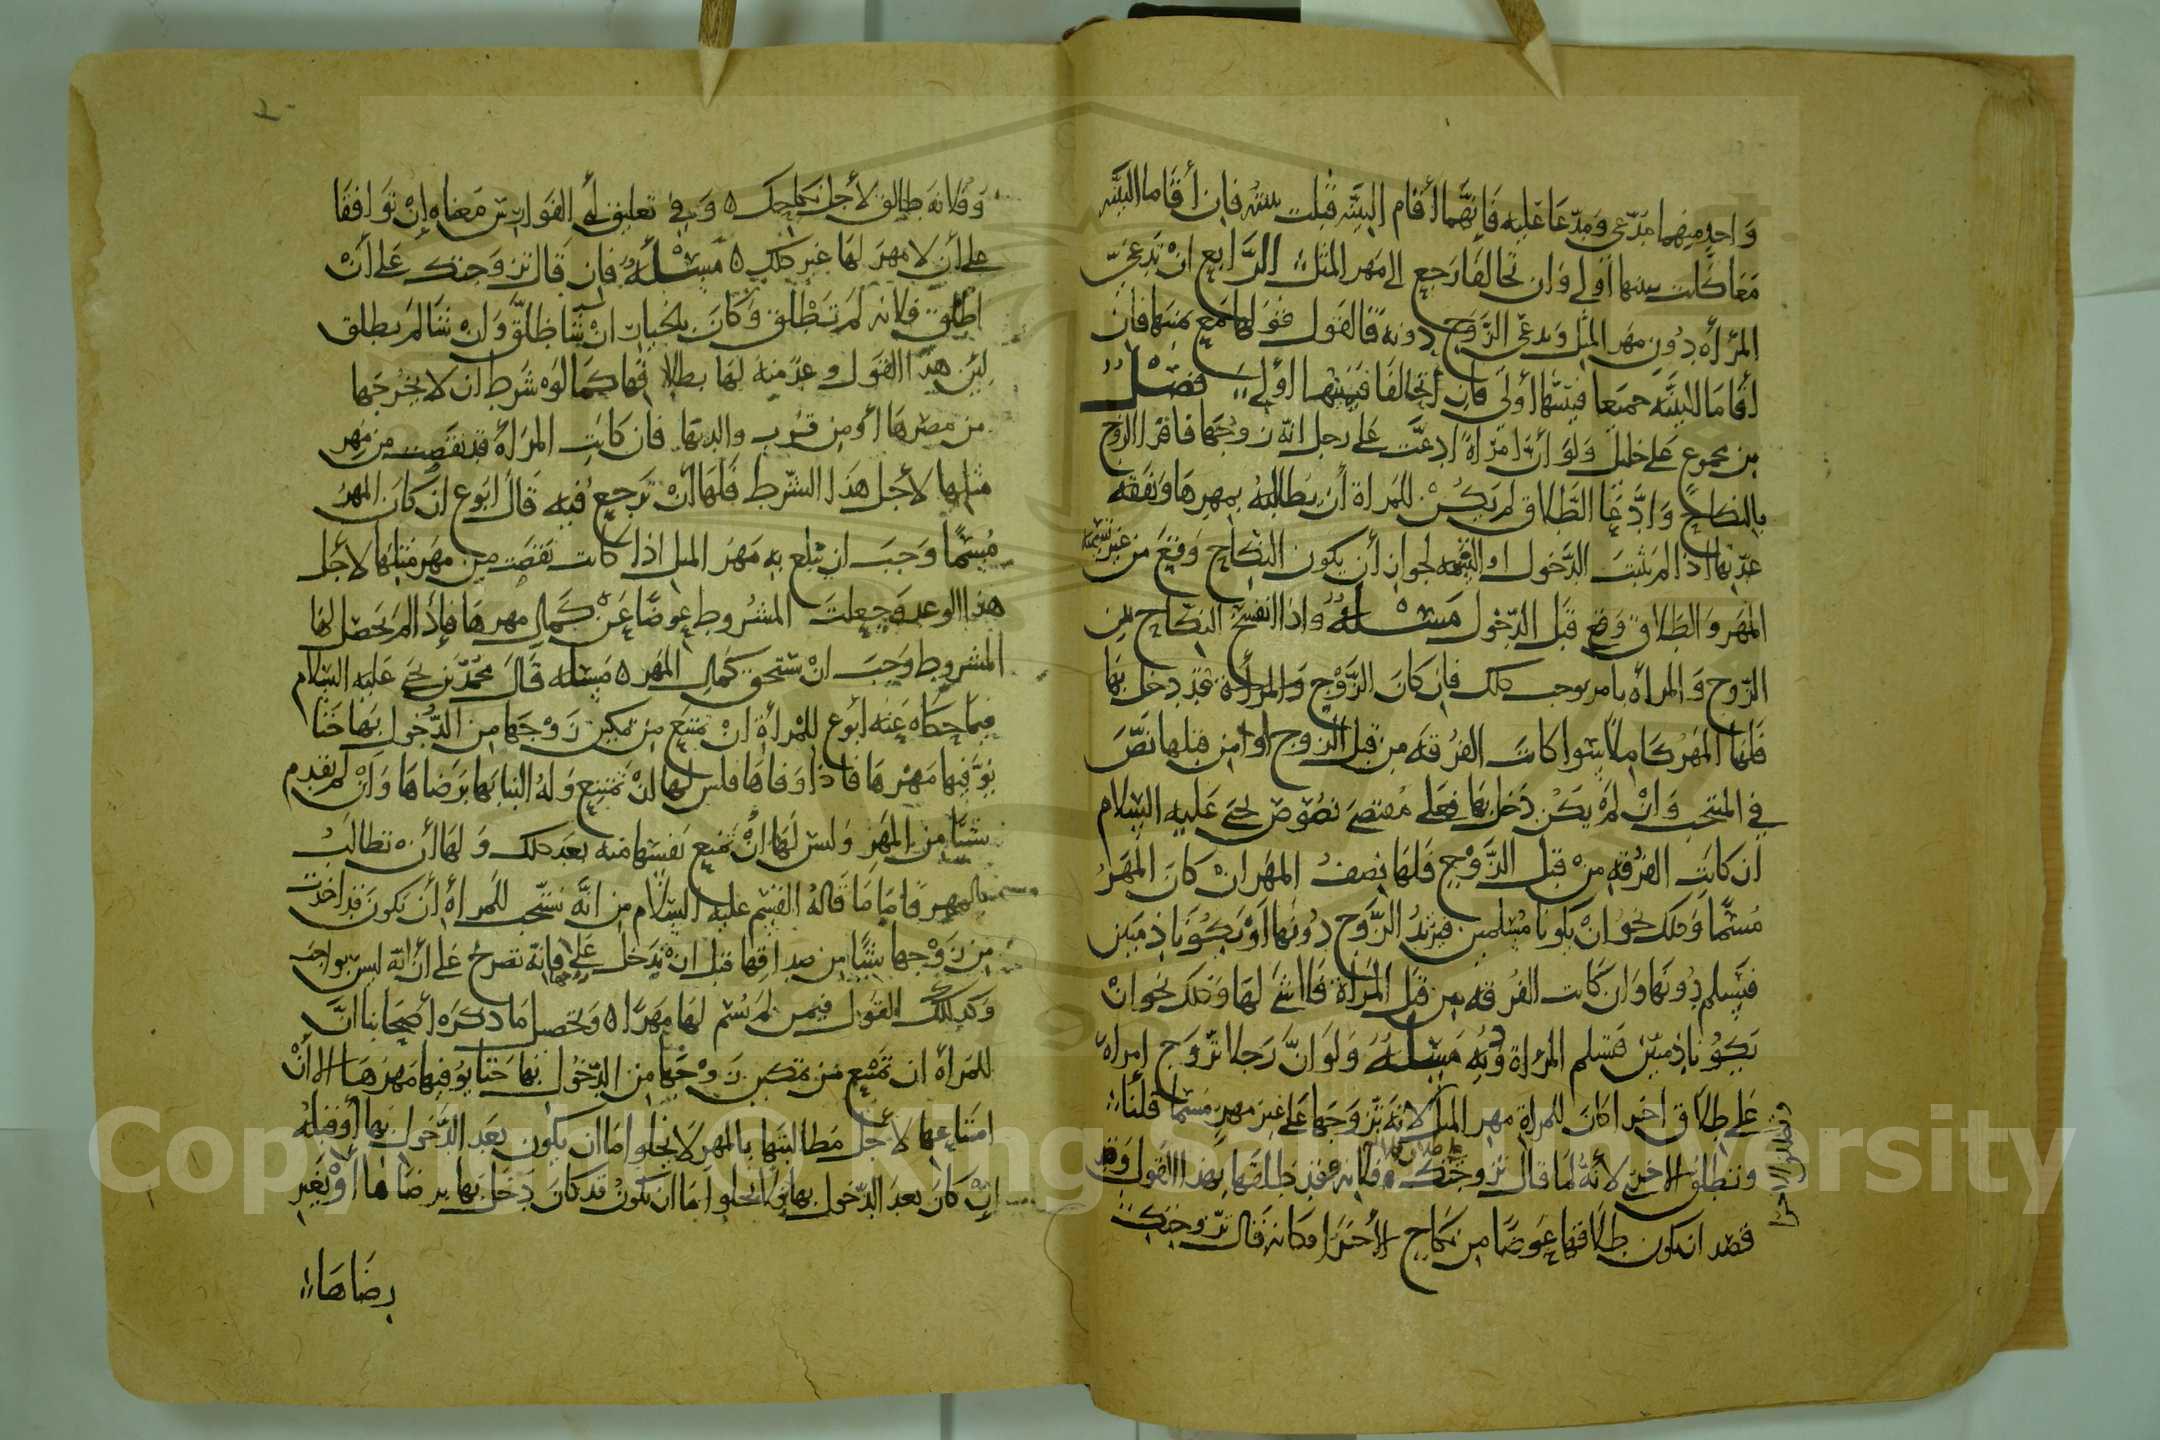 واحد منهما مدعي ومدعا عليه فايهما أقام البينه قبلت بينته فان أقاما البينه
معا كانت بينتها أولى وان تحالفا رجع الى مهر المثل الرابع ان تدعي
المرأه دون مهر المثل ويدعي الزوج دونه فالقول قولها مع يمينها فان
أقاما البينه جميعا فبينتها أولى فان تحالفا فبينتها أولى فصل
من مجموع علي خليل ولو أن امرأة ادعت على رجل انه زوجها فاقر الزوج
بالنكاح وادعا الطلاق لم يكن للمرأة أن تطالبه بمهرها ونفقة
عدتها اذا لم يثبت الدخول او التسميه لجواز أن يكون النكاح وقع من غير تسمية
المهر والطلاق وقع قبل الدخول مسئلة واذا انفسخ النكاح بين
الزوج والمرأه بامر يوجب ذلك فإن كان الزوج والمرأة قد دخل بها
فلها المهر كاملا سوا كانت الفرقه من قبل الزوج او من قبلها نص
في المنتخب وان لم يكن دخل بها فعلى مقتضى نصوص يحيى عليه السلام
ان كانت الفرقه من قبل الزوج فلها نصف المهر ان كان المهر
مسما وذلك نحو ان يكونا مسلمين فيرتد الزوج دونها أو يكونا ذميين
فيسلم دونها وان كانت الفرقه من قبل المرأة فلا شي لها وذلك نحو ان
يكونا ذميين فتسلم المرأة دونه مسئلة ولو ان رجلا تزوج امرأة
على طلاق اخرا كان للمرأة مهر المثل لانه تزوجها على غير مهر مسما قلنا
وتطلق الاخرى لأنه لما قال تزوجتك وفلانه فقد طلقها بهذا القول وقد
قصد ان يكون طلاقها عوضا من نكاح الأخرا فكانه قال تزوجتك
وتطلق الاخرا
وفلانه طالق لأجل نكاحك وفي تعليق أبي الفوارس معناه إن توافقا
على أن لا مهر لها غير ذلك مسئلة فان قال تزوجتك على أن
اطلق فلانه لم تطلق وكان بالخيار ان شا طلق وان شا لم يطلق
لأن هذا القول وعد منه لها بطلاقها كما لو شرط ان لا يخرجها
من مصرها أو من قرب والديها فان كانت المرأة قد نقصت من مهر
مثلها لأجل هذا الشرط فلها أن ترجع فيه قال ابو ع ان كان المهر
مسما وجب ان تبلغ به مهر المثل اذا كانت نقصت من مهر مثلها لأجل
هذا الوعد وجعلت المشروط عوضا عن كمال مهرها فإذا لم يحصل لها
المشروط وجب ان تستحق كمال المهر مسئلة قال محمد بن يحيى عليه السلام
فيما حكاه عنه ابو ع للمرأة ان تمتنع من تمكين زوجها من الدخول بها حتا
يوفيها مهرها فاذا وفاها فليس لها أن تمتنع وله البنا بها برضاها وان لم يقدم
شيا من المهر وليس لها أن تمنع نفسها منه بعد ذلك ولها أن تطالب
بالمهر فاما ما قاله القسم عليه السلام من انه نستحب للمرأة أن يكون قد اخذت
من زوجها شيا من صداقها قبل ان يدخل عليها فإنه تصرح على أنه ليس بواجب
وكذلك القول فيمن لم يسم لها مهرا وتحصيل ما ذكره أصحابنا أن
للمرأة ان تمتنع من تمكين زوجها من الدخول بها حتا يوفيها مهرها الا أن
امتناعها لأجل مطالبتها بالمهر لا يخلوا اما ان يكون بعد الدخول بها أو قبله
ان كان بعد الدخول بها فلا يخلوا اما ان يكون قد كان دخل بها برضاها أو بغير
رضاها
Copyright © King Saud University